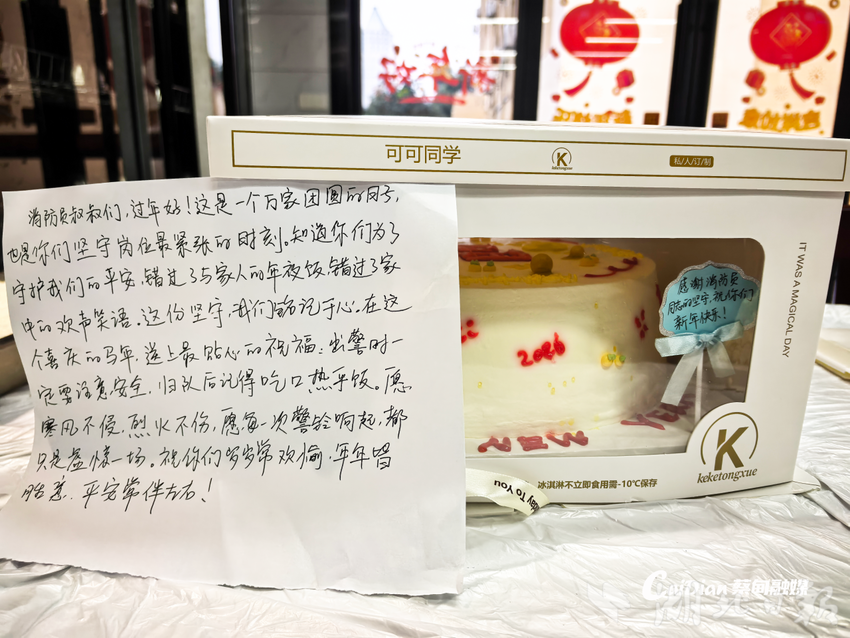 可可同学
K
keketongxue
私/人/订/制
消防员叔叔们,过年好!这是一个万家团圆的日子,
也是你们坚守岗位最紧张的时刻。知道你们为了
守护我们的平安,错过了与家人的年夜饭,错过了家
中的欢声笑语。这份坚守,我们铭记于心。在这
个喜庆的马年,送上最贴心的祝福:出警时一
定要注意安全,归队后记得吃口热乎饭。愿
寒风不侵,烈火不伤,愿每一次警铃响起,都
只是虚惊一场。祝你们岁岁常欢愉,年年皆
胜意,平安常伴左右!
感谢消防员
同志的坚守,祝你们
新年快乐!
2026
IT WAS A MAGICAL DAY
K
keketongxue
day To You
冰淇淋不立即食用需-10℃保存
蔡甸融媒